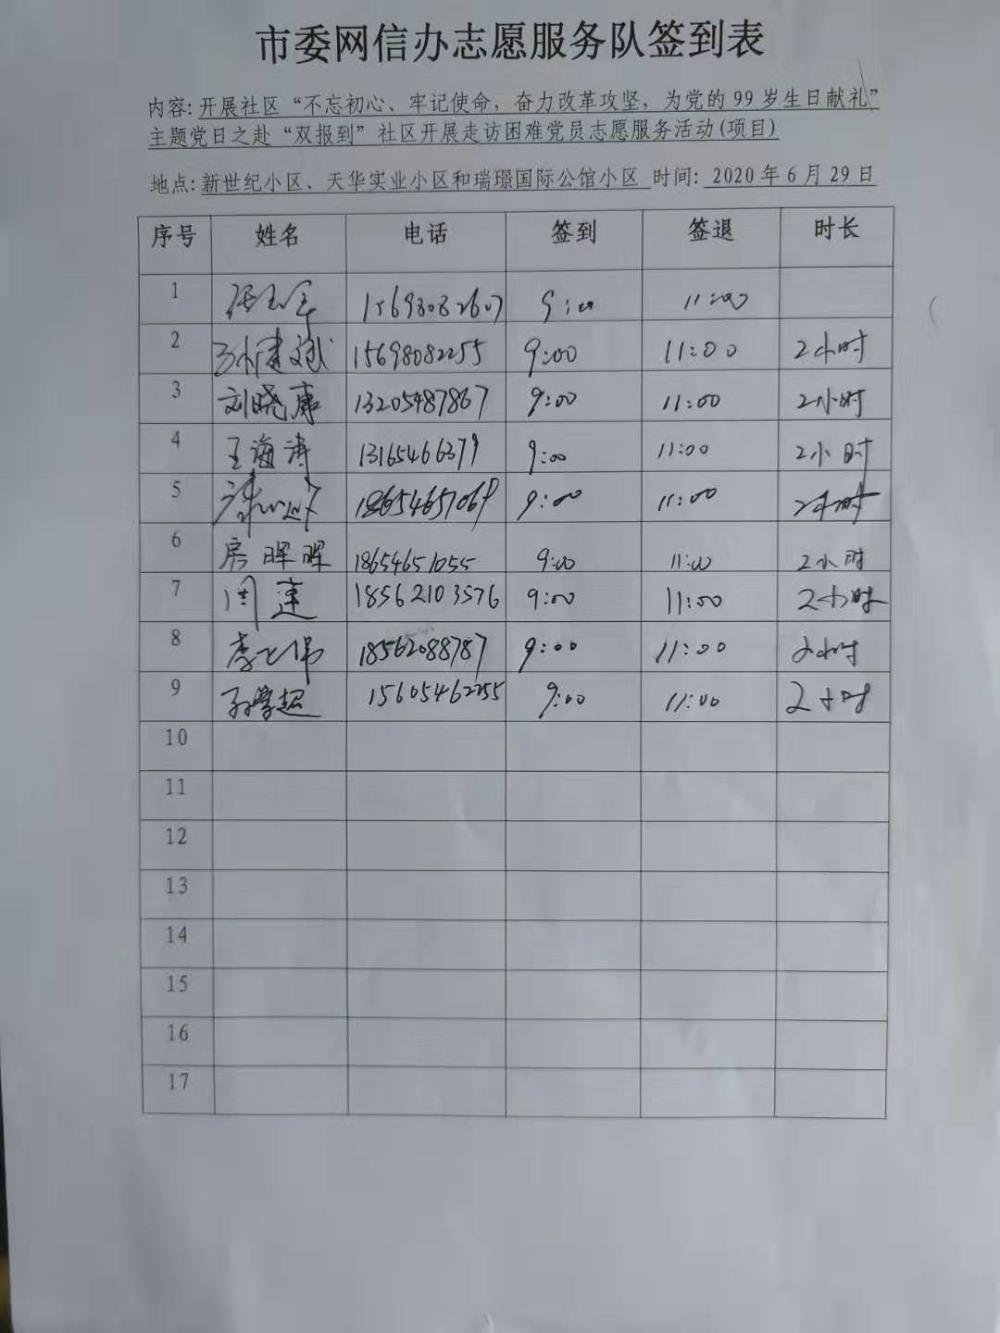 市委网信办志愿服务队签到表
内容:开展社区“不忘初心、牢记使命,奋力改革攻坚,为党的99岁生日献礼”
主题党日之赴“双报到”社区开展走访困难党员志愿服务活动(项目)
地点:新世纪小区、天华实业小区和瑞璟国际公馆小区 时间: 2020年6月29日
序号 姓名 电话 签到 签退 时长
1 15698082607 9:00 11:00
2 孙建斌 15698082255 9:00 11:00 2小时
3 刘晓康 13205487867 9:00 11:00 2小时
4 王海涛 13165466379 9:00 11:00 2小时
5 18654657069 9:00 11:00 2小时
6 房晖晖 18654651055 9:00 11:00 2小时
7 周莲 18562103576 9:00 11:00 2小时
8 李飞伟 18562088787 9:00 11:00 2小时
9 孙学超 15605462255 9:00 11:00 2小时
10
11
12
13
14
15
16
17